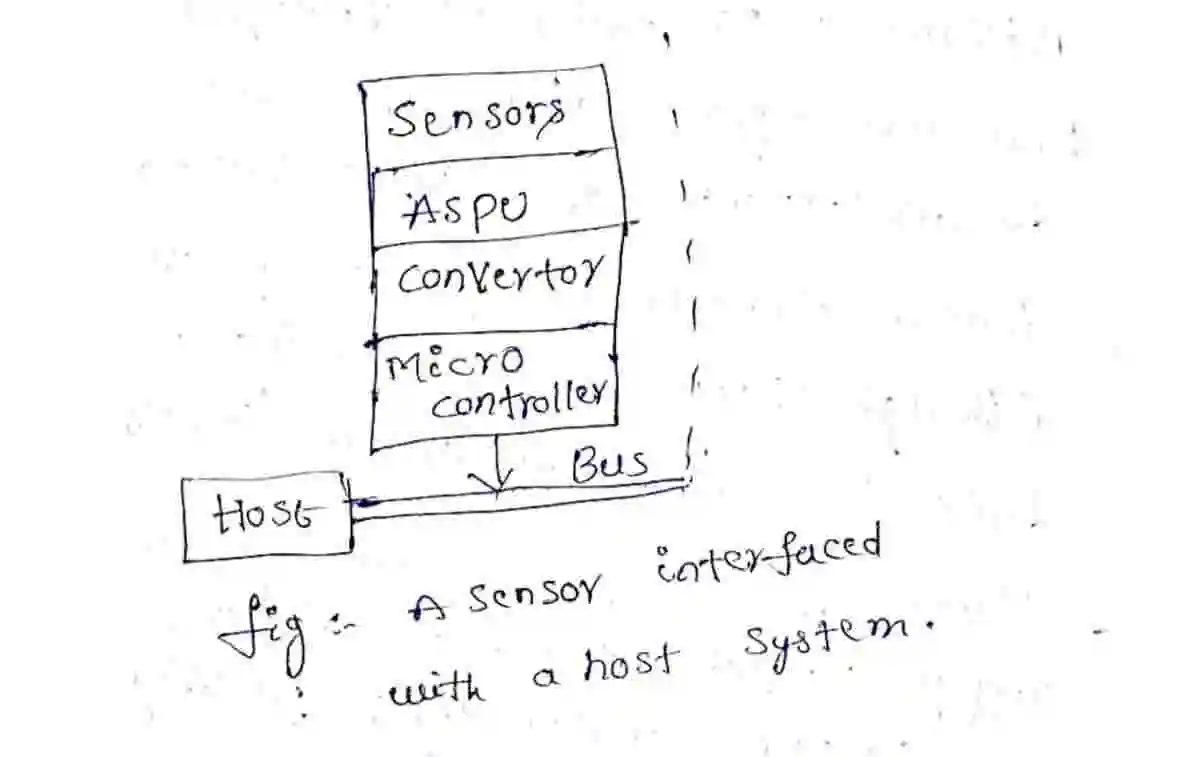 Sensors
ASPU
Convertor
Micro
controller
Bus
Host
fig :- A sensor interfaced
with a host system.